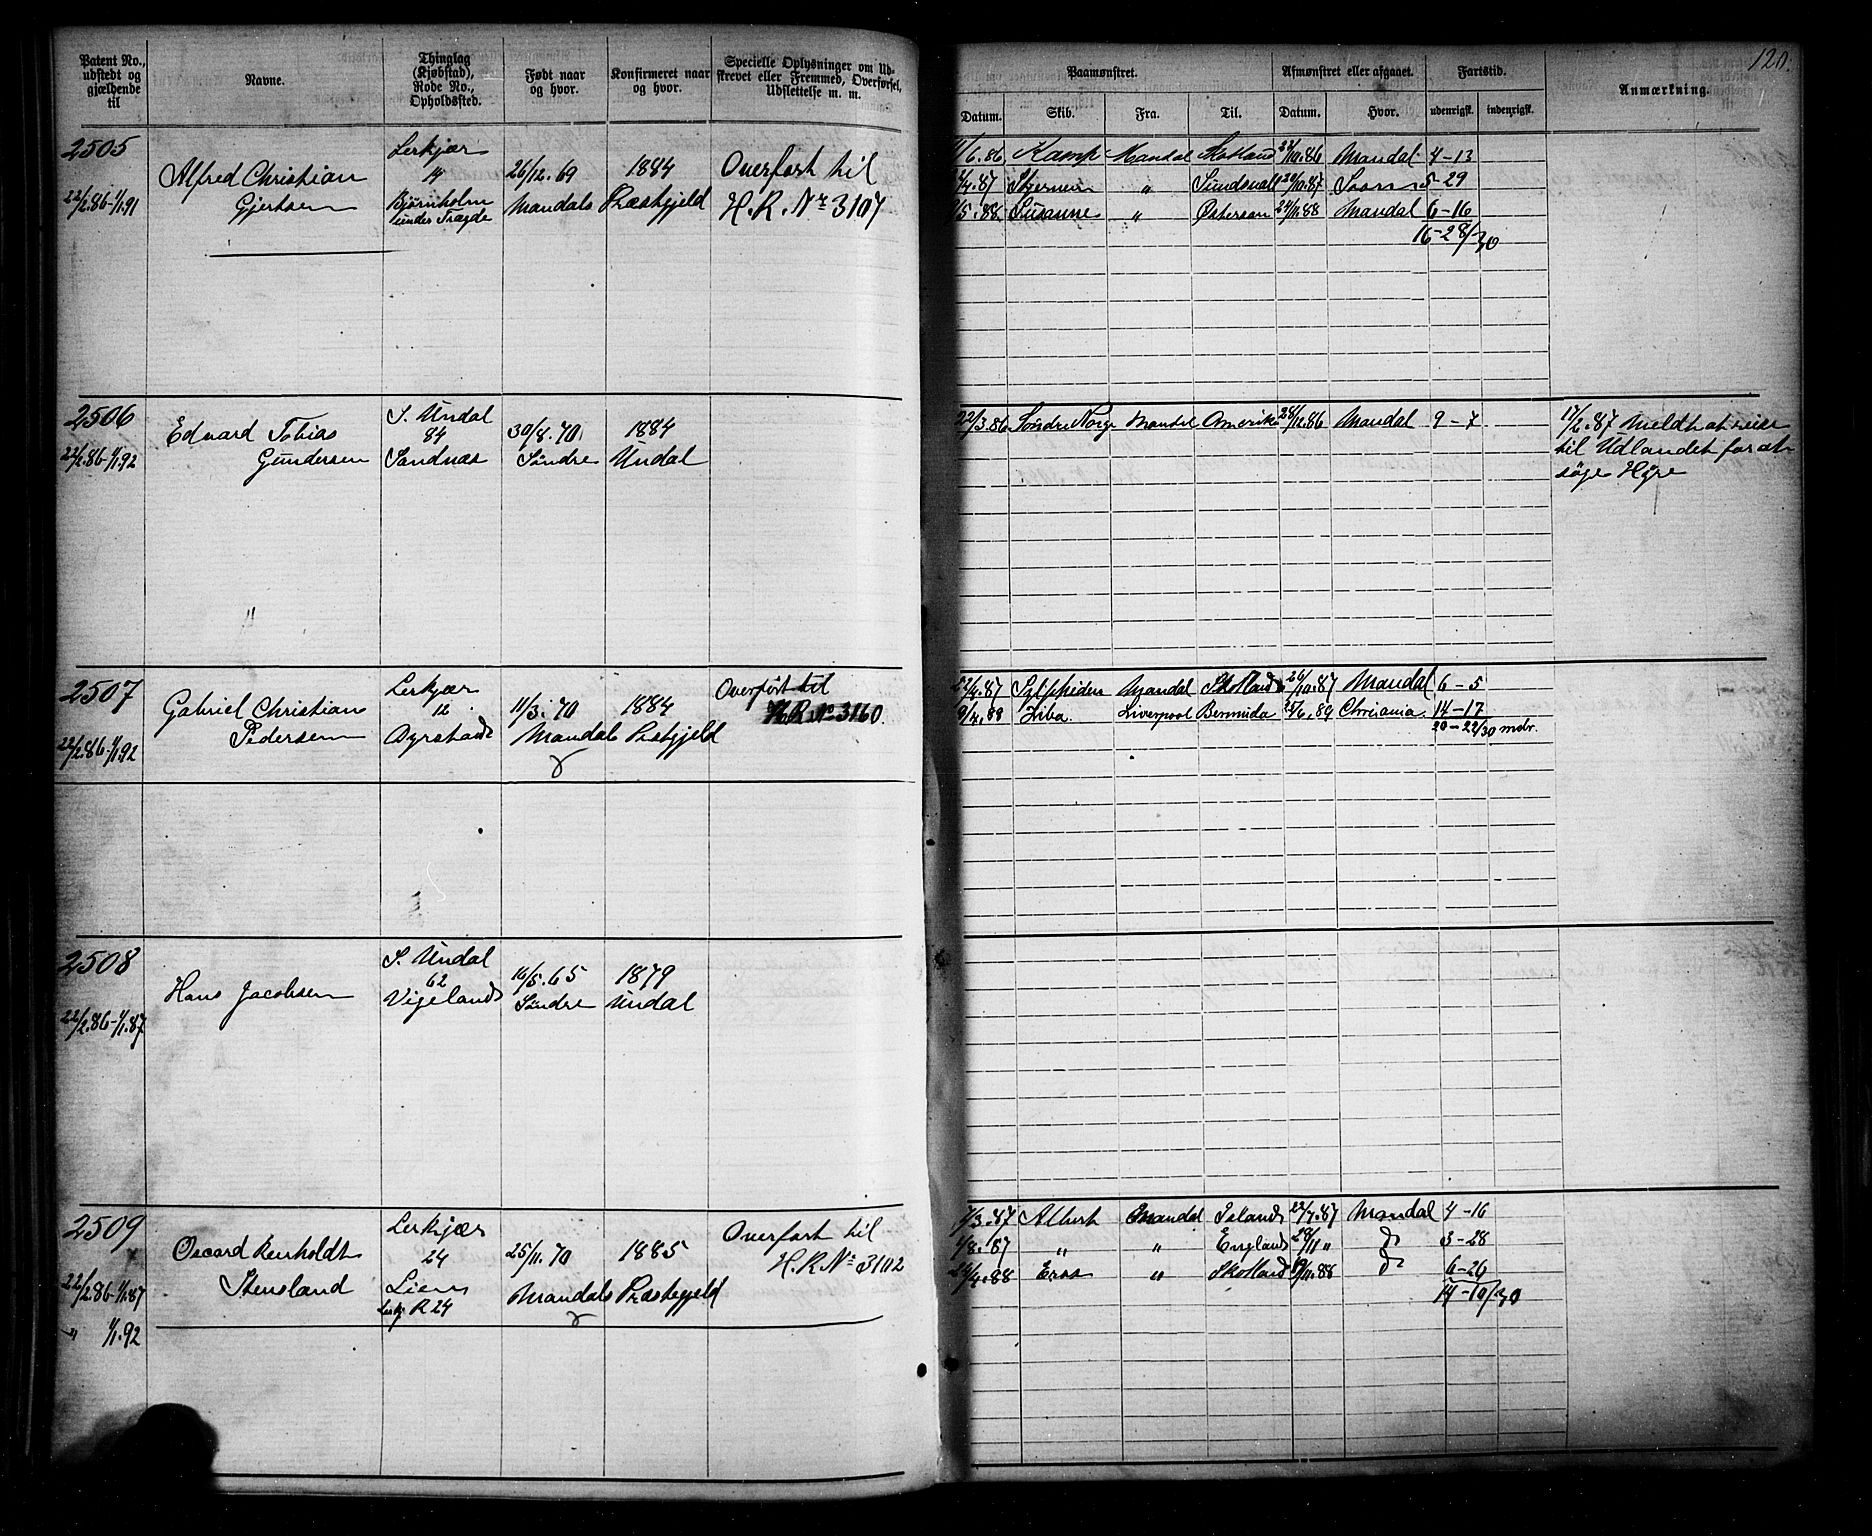 120.
Patent No., udstedt og gjældende til
Navne.
Thinglag (Kjøbstad), Rode No., Opholdssted.
Født naar og hvor.
Konfirmeret naar og hvor.
Specielle Oplysninger om Udskrevet eller Fremmed, Overførsel, Udslettelse m. m.
Paamønstret.
Afmønstret eller afgaaet.
Fartstid.
Anmærkning.
Datum. Skib. Fra. Til. Datum. Hvor. udenrigsk. indenrigsk.
2505
22/2.86-1/1.91
Alfred Christian
Gjertsen
Lerkjær
14
Bjørnholm
under Trægde
26/12.69 1884
Mandals Præstgjeld
Overført til
H.R. Nr 3107
/6.86 Kamp Mandal Skotland 24/10.86 Mandal 4-13
/4.87 Stjernen " Sundsvall 29/10.87 5-29
/5.88 Susanne " Østersøn 24/11.88 Mandal 6-16
16-28/30
2506
22/2.86-1/1.92
Edvard Tobias
Gundersen
S. Undal
84
Sandnæs
30/8.70 1884
Søndre Undal
22/3.86 Søndre Norge Mandal Amerika 28/12.86 Mandal 9-7
17/2.87 Meldt at reise
til Udlandet for at
søge Hyre
2507
22/2.86-1/1.92
Gabriel Christian
Pedersen
Lerkjær
12
Dyrstad
11/3.70 1884
Mandals Præstgjeld
Overført til
H.R. No 3160.
22/4.87 Sylphiden Mandal Skotland 26/10.87 Mandal 6-5
9/4.88 Ziba. Liverpool Bermuda 25/6.89 Chrisania. 14-17
20-22/30 mdr.
2508
22/2.86-1/1.87
Hans Jacobsen
S. Undal
62
Vigeland
16/5.65 1879
Søndre Undal
2509
22/2.86-1/1.87
" 1/1.92
Oscard Renholdt
Stensland
Lerkjær
24
Lien
Lerkj R 24
25/11.70 1885
Mandals Præstegjeld
Overført til
H.R. No 3102
/3.87 Albert Mandal Island 22/7.87 Mandal 4-16
/8.87 " " England 28/11 " do 3-28
24/4.88 Eros " Skotland /11.88 do 6-26
14-10/30